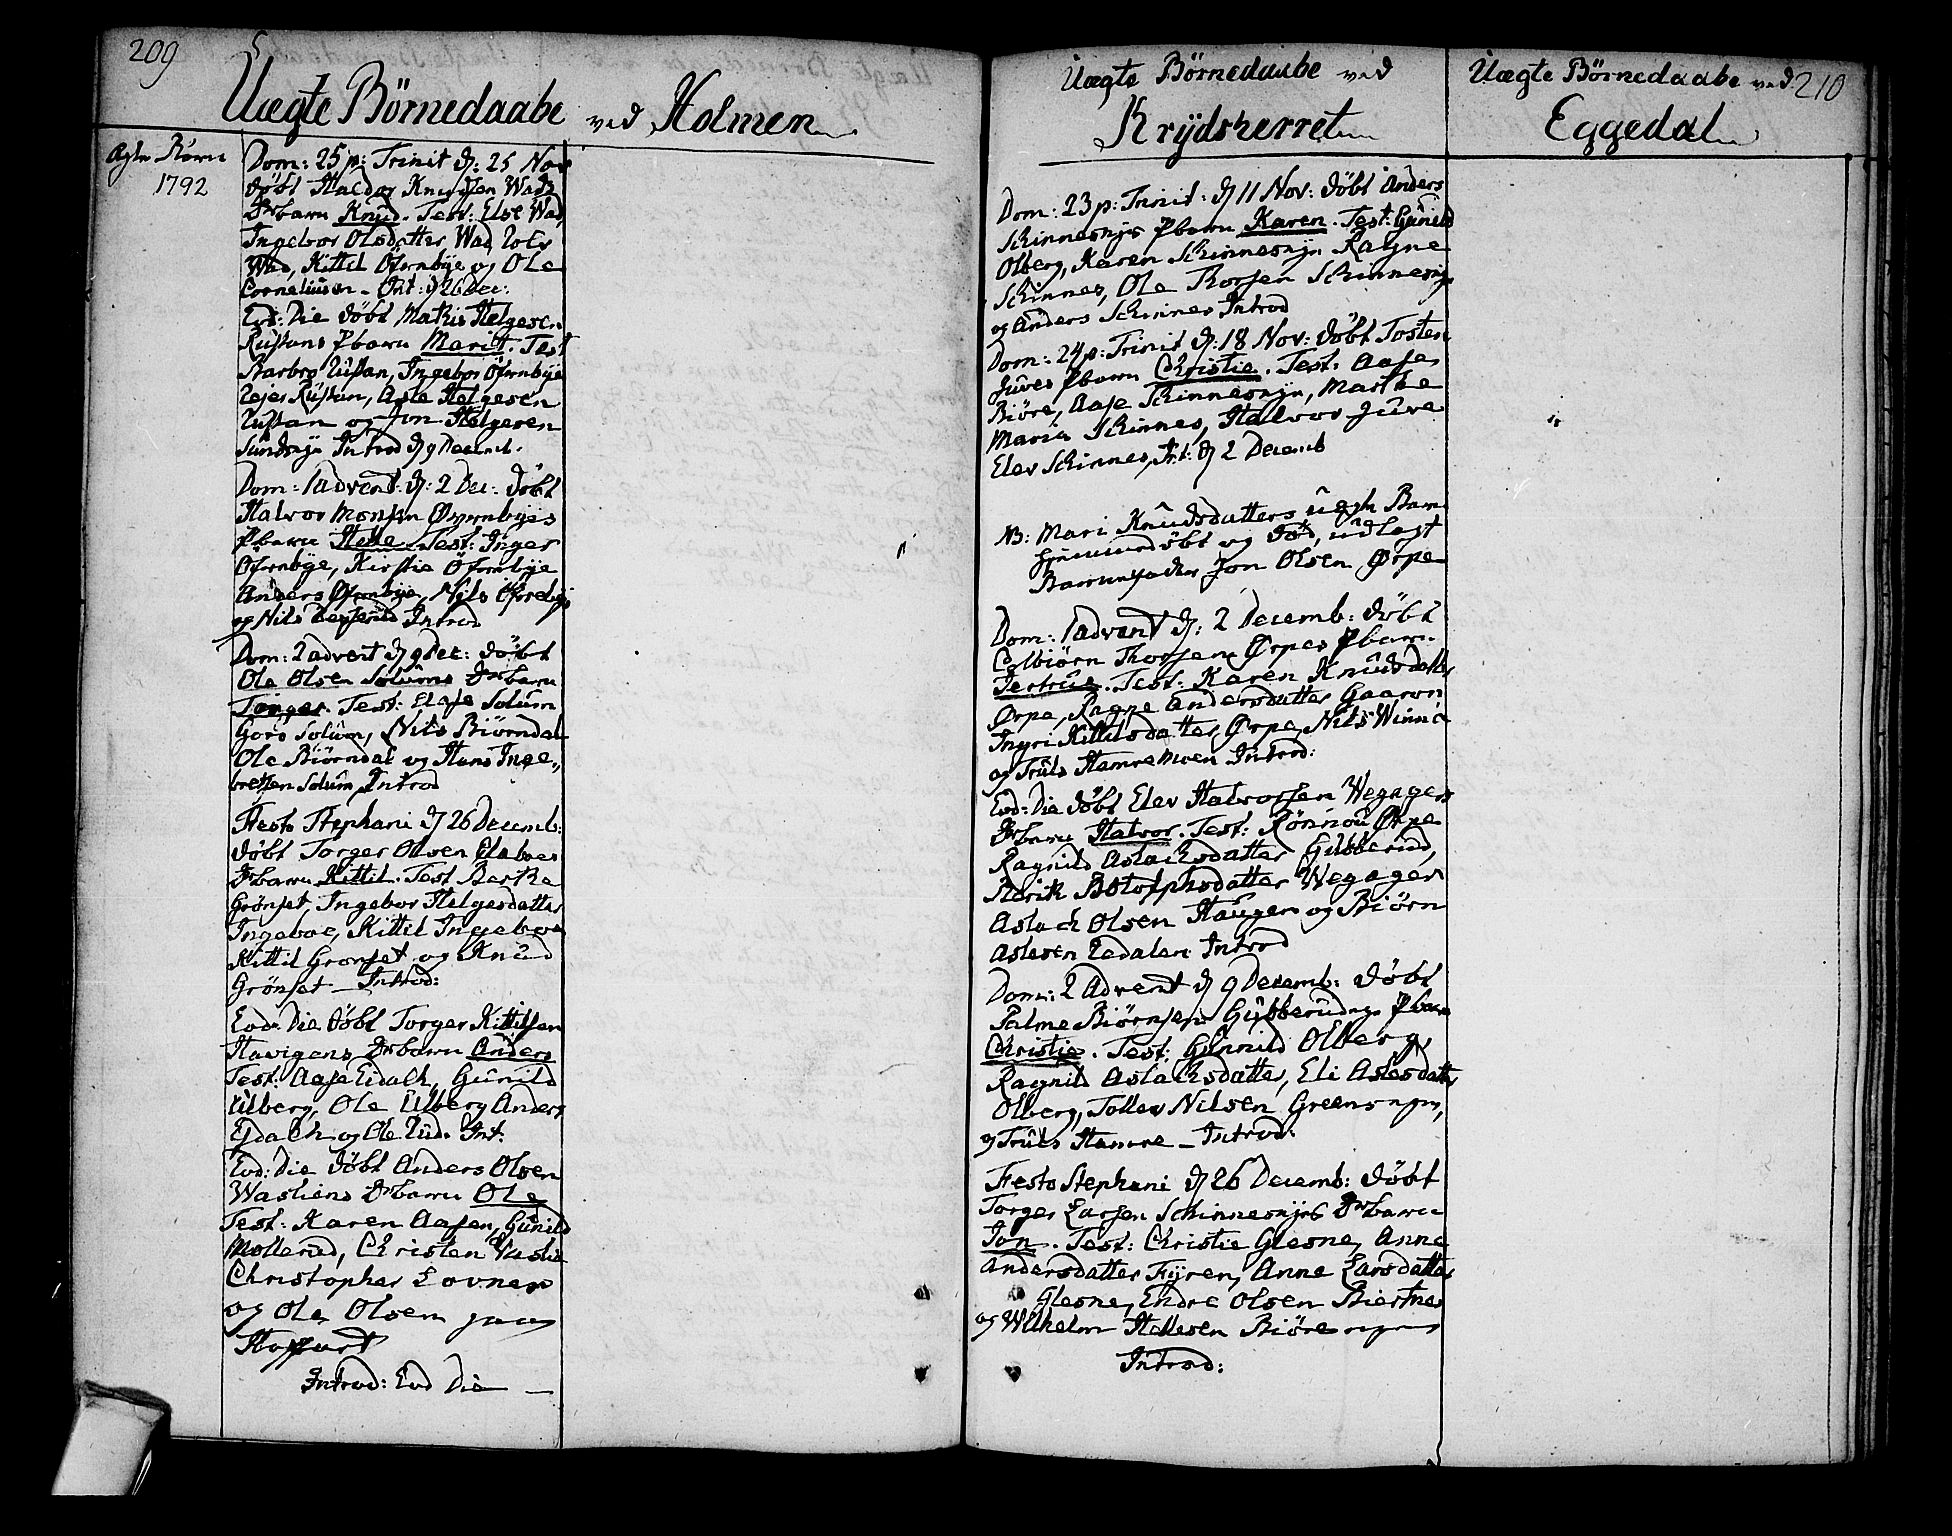 209
Uægte Börnedaabe ved Holmen
Ægte Börn
1792
Dom: 25 p: Trinit d: 25 Nov
döbt Haldor Knudsen Wads
Drbarn Knud. Test: Else Wad,
Ingebor Olsdatter Wad
Wad, Kittil Öfernbye og Ole
Corneliusen - Int: d 26 Dec:
Eod: Die döbt Mathis Helgesen
Rustans Pbarn Marit. Test
Barbro Rustan, Ingebor Öfernbye
Rejer Rustan, Asle Helgesen
Rustan og Jon Helgesen
Sundnyn Introd d 9 Decemb.
Dom: 1 advent: d: 2 Dec: döbt
Halvor Monsen Øvernbyes
Pbarn Helle. Test: Inger
Öfernbye, Kirstie Öfernbye
Anders Öfernbye, Nils Öfrebye
og Nils Introd
Dom: 2 advent d 9 Dec: döbt
Ole Olsen Solums Drbarn
Torger. Test: Solum
Goro Solum, Nils Biörndal
Ole Biörndal og Hans Inge-
bretsen Solum, Introd
Festo Stephani d 26 Decemb:
döbt Torger Olsen
Drbarn Kittil. Test Berthe
Grönset Ingebor Helgesdatter
Ingeboe, Kittil Ingeboe
Kittil Grönset og Knud
Grönset - Introd:
Eod: Die döbt Torger Kittilsen
Havigens Drbarn Anders
Test: Aase Eidalh, Gunild
Ulberg, Ole Ulberg Anders
og Ole Int:
Eod: Die döbt Anders Olsen
Wasliens Drbarn Ole
Test: Karen Aasen, Gunild
Mollerud, Christen Waslie
Christopher Lovnes
og Ole Olsen
Introd: Eod Die -
Uægte Börnedaabe ved
Krydsherret
Dom: 23 p: Trinit: d 11 Nov: döbt Anders
Schinnesnyes Pbarn Karen. Test: Gunild
Olberg, Karen Schinnesnyn Ragne
Schinnes, Ole Thorsen Schinnesnye
og Anders Schinnes Introd
Dom: 24 p: Trinit d: 18 Nov: döbt Tosten
Jures Pbarn Christie. Test: Aase
Biöre, Aase Schinnesnyn, Marthe
Maria Schinnes, Halvor Jure
Elev Schinnes, Int: d 2 Decemb
NB: Mari Knudsdatters uegte Barn
hjemmedöbt og död, udlagt
Barnefader Jon Olsen Ørpe
Dom: 1 advent d: 2 Decemb: döbt
Colbiörn Thorsen Ørpes Pbarn
Jertrue. Test: Karen Knudsdatter
Ørpe, Ragne Andersdatter Gaaren
Ingri Kittilsdatter Ørpe, Nils Winnie
og Truls Hamremoen Introd:
Eod: Die döbt Elev Halvorsen Wegagers
Drbarn Halvor. Test: Rönnou Ørpe
Ragnild Aslachsdatter Gubberud,
Marit Botolphsdatter Wegager
Aslach Olsen Haugen og Biörn
Aslesen Introd
Dom: 2 Advent d 9 Decemb: döbt
Palme Biörnsen Gubberuds Pbarn
Christie. Test: Gunnild Olberg
Ragnild Aslachsdatter, Eli Aslesdatter
Olberg, Tollev Nilsen Greensnyn,
og Truls Hamre - Introd:
Festo Stephani d 26 Decemb: döbt
Torger Larsen Schinnesnyes Drbarn
Jon. Test: Christie Glesne, Anne
Andersdatter Fyren, Anne Larsdatter
Glesne, Endre Olsen Biertnes
og Wilhelm Hallesen Biöre
Introd:
Uægte Börnedaabe ved 210
Eggedal